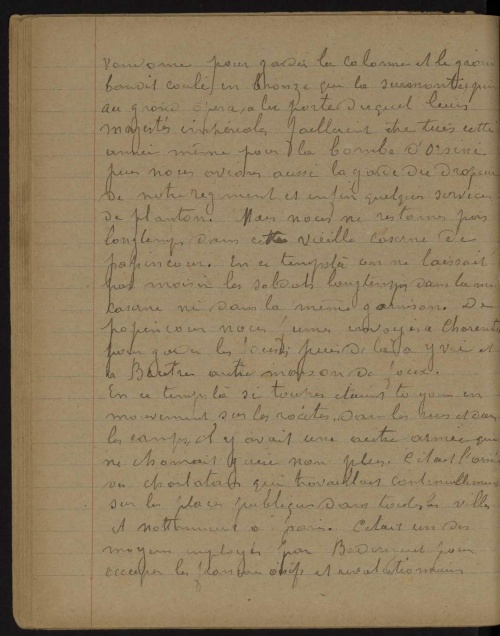 vendome pour garder la colonne et le grand
bandit coulé en bronze qui la surmonte, puis
au grand opera, a la porte duquel leurs
majestés impériales faillirent être tués cette
année même pour la bombe d'Orsini
puis nous avions aussi la garde du drapeau
de notre regiment et enfin quelques services
de planton. Mais nous ne restames pas
longtemps dans cette vieille caserne de
papincour. En ce temps là on ne laissait
pas moisir les soldats longtemps dans la même
caserne ni dans la même garnison. De
popincour nous fumes envoyés a Charenton
pour garder les fous, puis de là a Yvri et
a Bicetre autre maison de fous.
En ce temps là si toutes etaient toujours en
mouvement sur les routes, dans les rues et dans
les camps, il y avait une autre armée qui
ne chomait guère non plus. C'etait l'armée
des charlatans qui travaillait continuellement
sur les places publiques dans toutes les villes
et notamment a Paris. C'etait un des
moyens employés par Badinguet pour
occuper les oisifs et revolutionnaires